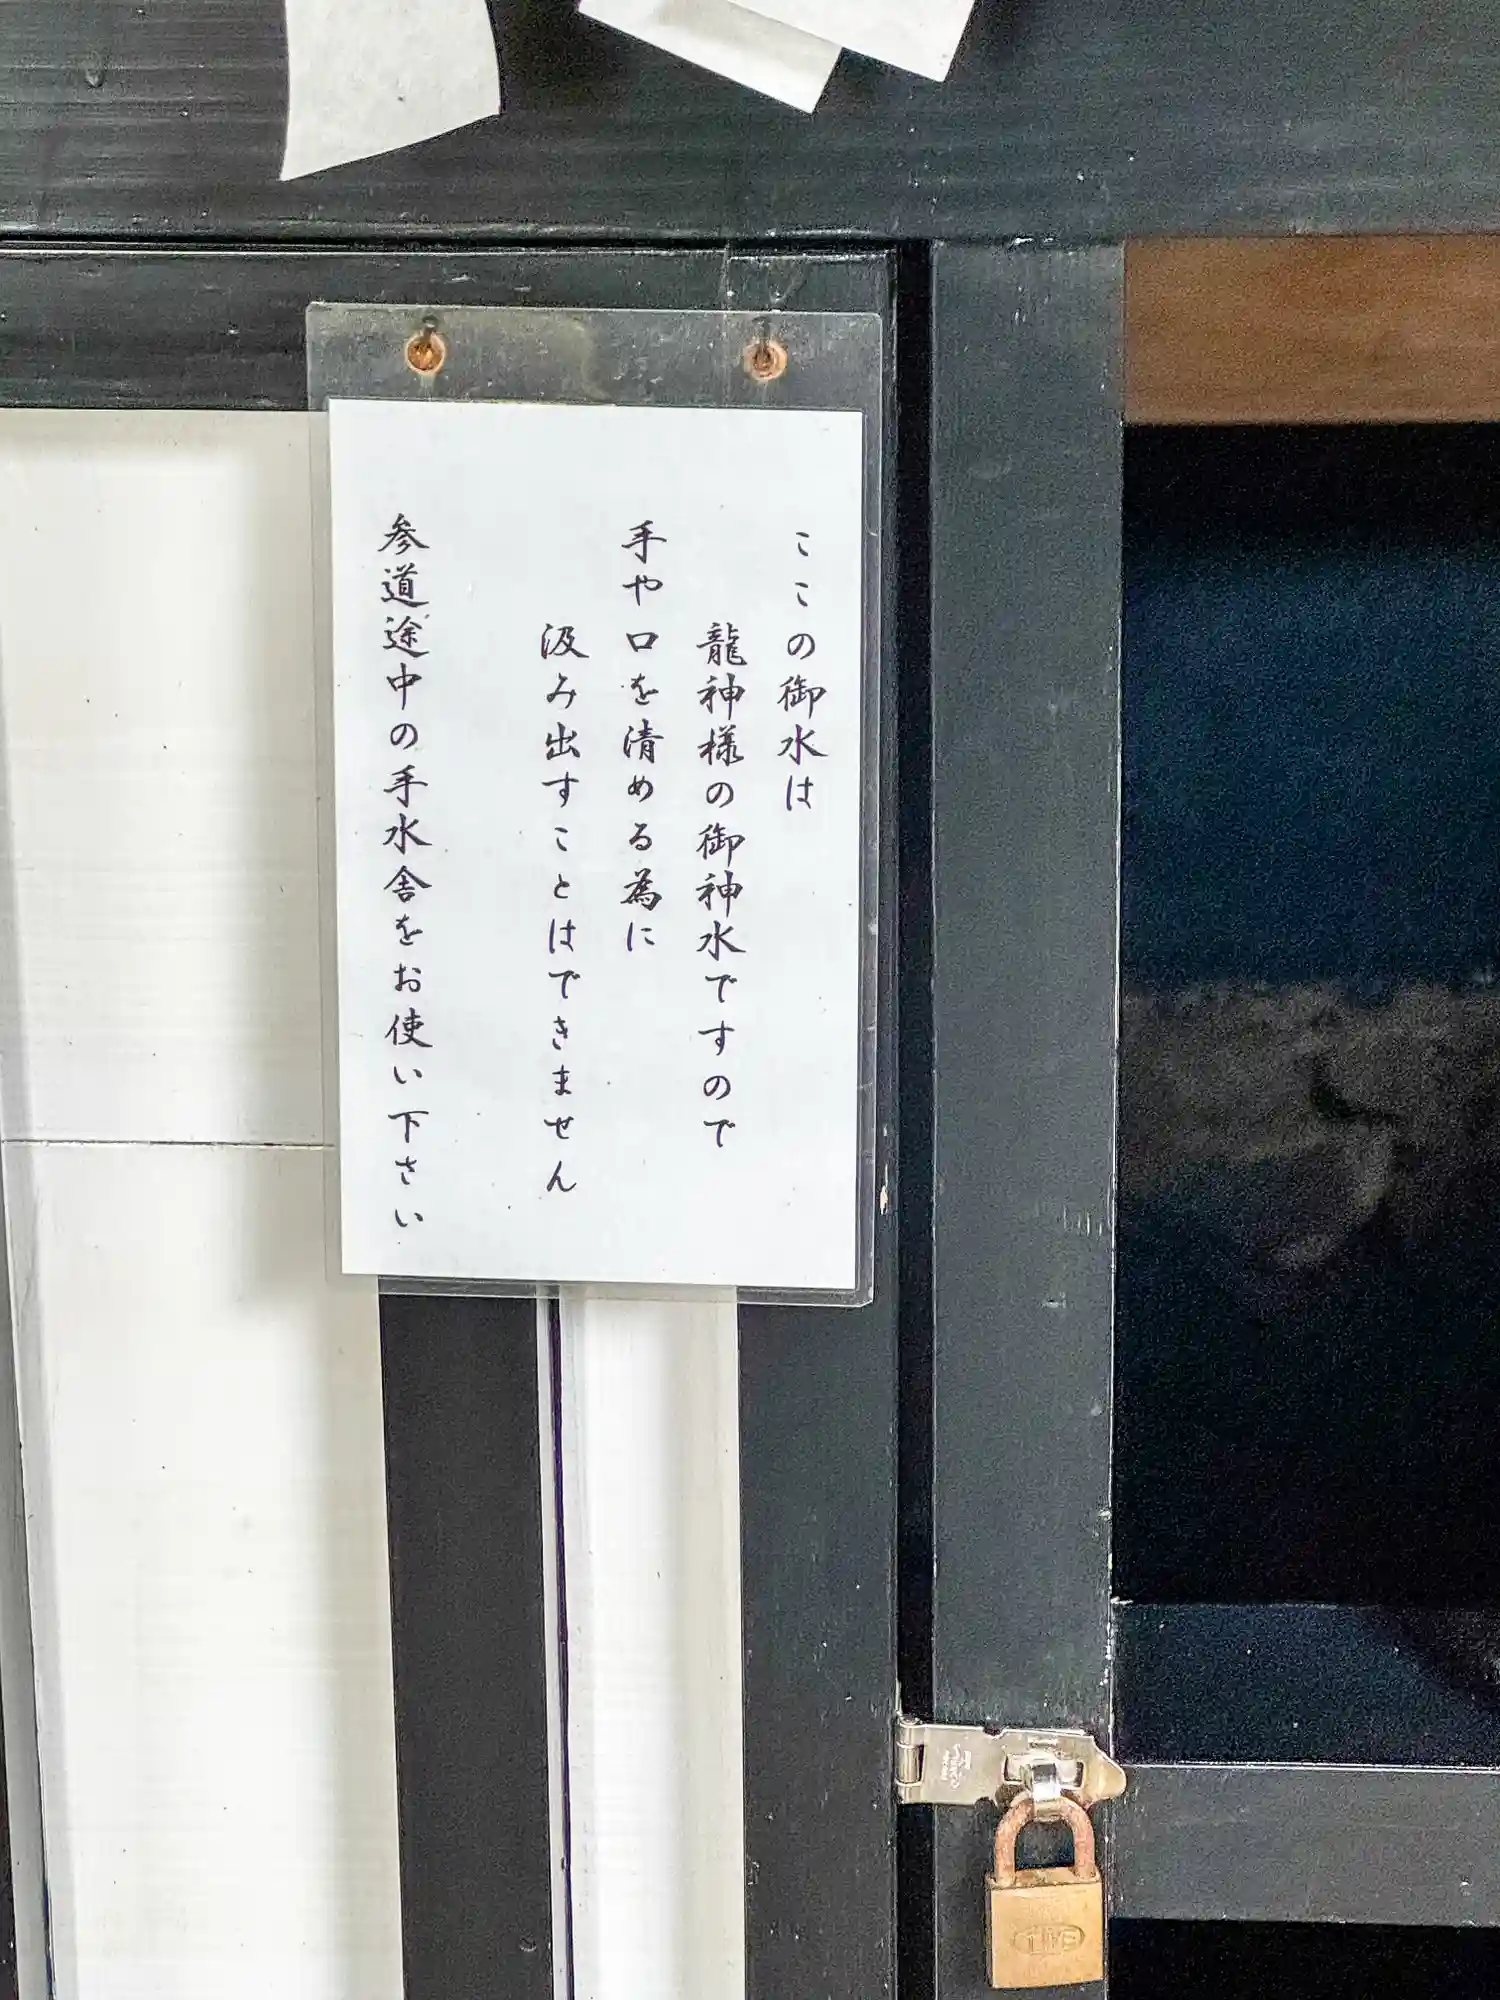 ここの御水は
龍神様の御神水ですので
手や口を清める為に
汲み出すことはできません
参道途中の手水舎をお使い下さい